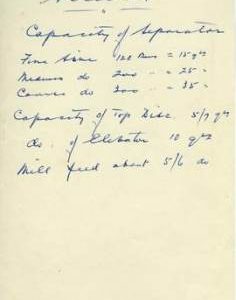 Capacity of Separator
Fine Size 122 Revs = 15 qrs
Medium do 200 " = 25 "
Coarse do 300 " = 35 "
Capacity of Top Disc 5/7 qrs
do. of Elevator 10 qrs
Mill feed about 5/6 do